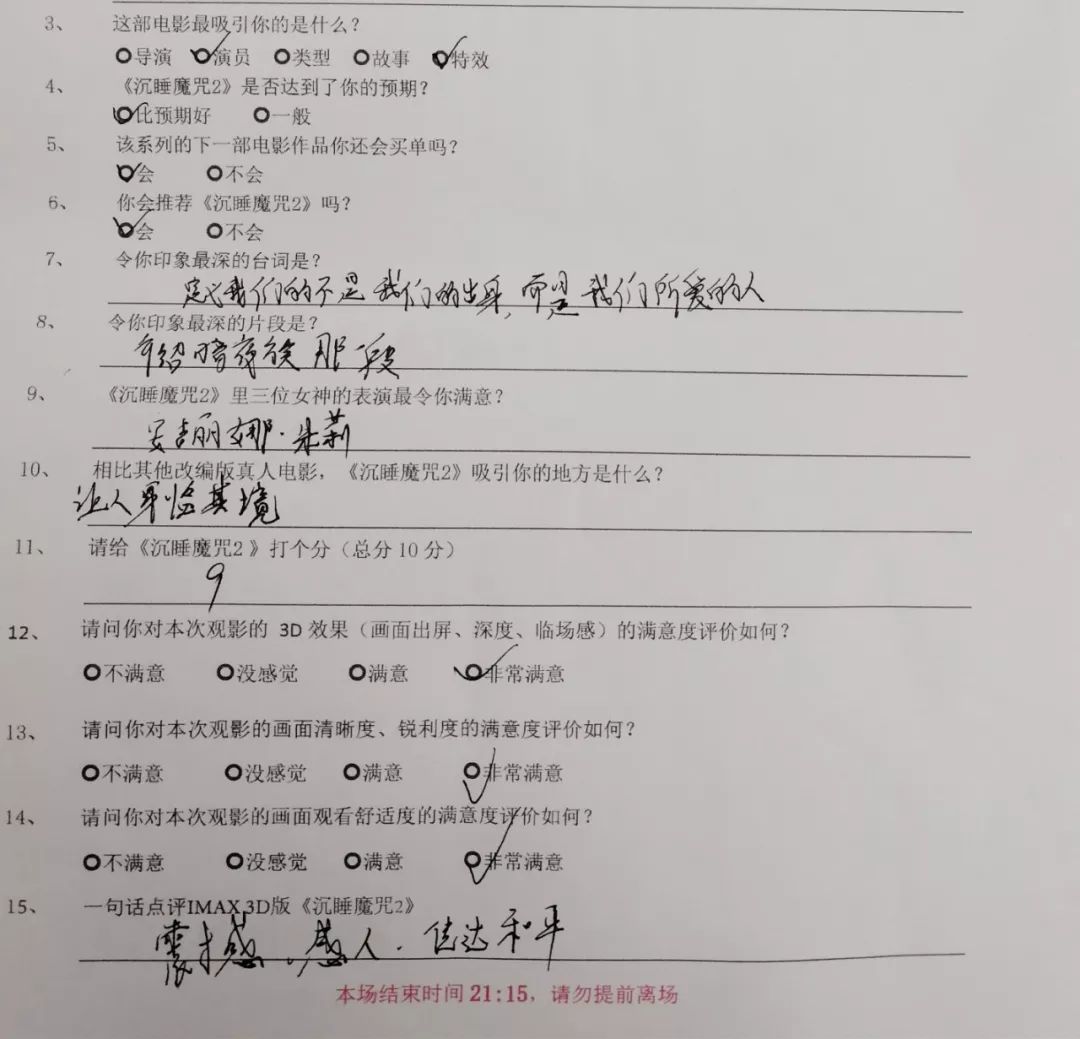 3、 这部电影最吸引你的是什么？
导演 演员 类型 故事 特效
4、 《沉睡魔咒2》是否达到了你的预期？
比预期好 一般
5、 该系列的下一部电影作品你还会买单吗？
会 不会
6、 你会推荐《沉睡魔咒2》吗？
会 不会
7、 令你印象最深的台词是？
定义我们的不是我们的出身，而是我们所爱的人
8、 令你印象最深的片段是？
介绍暗夜族那段
9、 《沉睡魔咒2》里三位女神的表演最令你满意？
安吉丽娜·朱莉
10、 相比其他改编版真人电影，《沉睡魔咒2》吸引你的地方是什么？
让人身临其境
11、 请给《沉睡魔咒2 》打个分（总分10分）
9
12、 请问你对本次观影的 3D 效果（画面出屏、深度、临场感）的满意度评价如何？
不满意 没感觉 满意 非常满意
13、 请问你对本次观影的画面清晰度、锐利度的满意度评价如何？
不满意 没感觉 满意 非常满意
14、 请问你对本次观影的画面观看舒适度的满意度评价如何？
不满意 没感觉 满意 非常满意
15、 一句话点评IMAX 3D版《沉睡魔咒2》
震撼、感人. 传达和平
本场结束时间 21:15，请勿提前离场